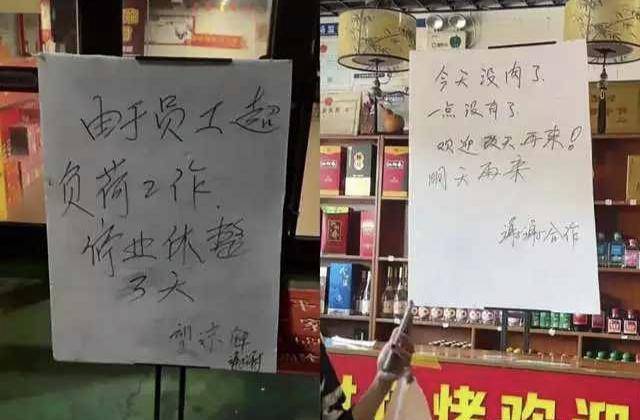 由于员工超
负荷工作.
停业休整
3天
望谅解
谢谢
今天没肉了
一点没有了
欢迎改天再来!
明天再来
谢谢合作
烤欢迎